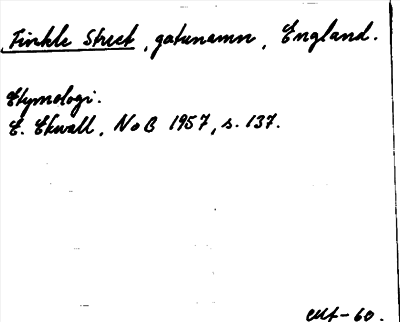 Finkle Street, gatunamn, England.
Etymologi.
E. Ekwall, NoB 1957, s. 137.
-60.